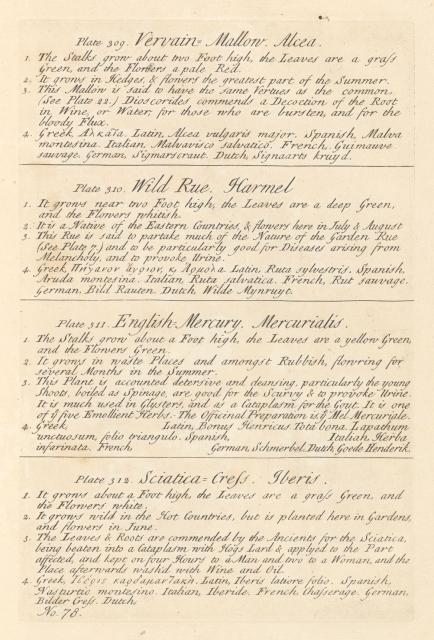 Plate 309. Vervain=Mallow. Alcea.
1. The Stalks grow about two Foot high, the Leaves are a grass
Green, and the Flowers a pale Red.
2. It grows in Hedges, & flowers the greatest part of the Summer.
3. This Mallow is said to have the same Vertues as the common.
(See Plate 22.) Dioscorides commends a Decoction of the Root
in Wine, or Water, for those who are bursten, and for the
bloody Flux.
4. Greek, Αλκαία. Latin, Alcea vulgaris major. Spanish, Malva
montesina. Italian, Malvavisco salvatico. French, Guimauve
sauvage. German, Sigmarscraut. Dutch, Signaarts kruyd.
Plate 310. Wild Rue. Harmel
1. It grows near two Foot high, the Leaves are a deep Green,
and the Flowers whitish.
2. It is a Native of the Eastern Countries, & flowers here in July & August
3. This Rue is said to partake much of the Nature of the Garden Rue
(See Plate 7.) and to be particularly good for Diseases arising from
Melancholy, and to provoke Urine.
4. Greek, Πήγανον άγριον, Latin, Ruta sylvestris. Spanish,
Aruda montesina. Italian Ruta salvatica. French, Rut sauvage.
German, Bill Rauten. Dutch Wilde Mynruyt.
Plate 311. English=Mercury. Mercurialis.
1. The Stalks grow about a Foot high, the Leaves are a yellow Green,
and the Flowers Green.
2. It grows in waste Places and amongst Rubbish, flowring for
several Months in the Summer.
3. This Plant is accounted detersive and cleansing, particularly the young
Shoots, boiled as Spinage, are good for the Scurvy & to provoke Urine.
It is much used in Glysters, and as a Cataplasm for the Gout. It is one
of ye five Emollient Herbs. The Officinal Preparation is ye Mel Mercuriale.
4. Greek, Latin, Bonus Henricus Tota bona. Lapathum
unctuosum, folio triangulo. Spanish, Italian, Herba
infarinata. French, German, Schmerbel. Dutch, Goede Henderik.
Plate 312. Sciatica=Cress. Iberis.
1. It grows about a Foot high, the Leaves are a grass Green, and
the Flowers white.
2. It grows wild in the Hot Countries, but is planted here in Gardens,
and flowers in June.
3. The Leaves & Roots are commended by the Ancients for the Sciatica,
being beaten into a Cataplasm with Hogs Lard & applyed to the Part
affected, and kept on four Hours to a Man and two to a Woman, and the
Place afterwards wash'd with Wine and Oil.
4. Greek, Latin, Iberis latiore folio. Spanish,
Nasturtio montesino. Italian, Iberide. French, Chasserage. German,
Bilder Cress. Dutch,
No. 78.